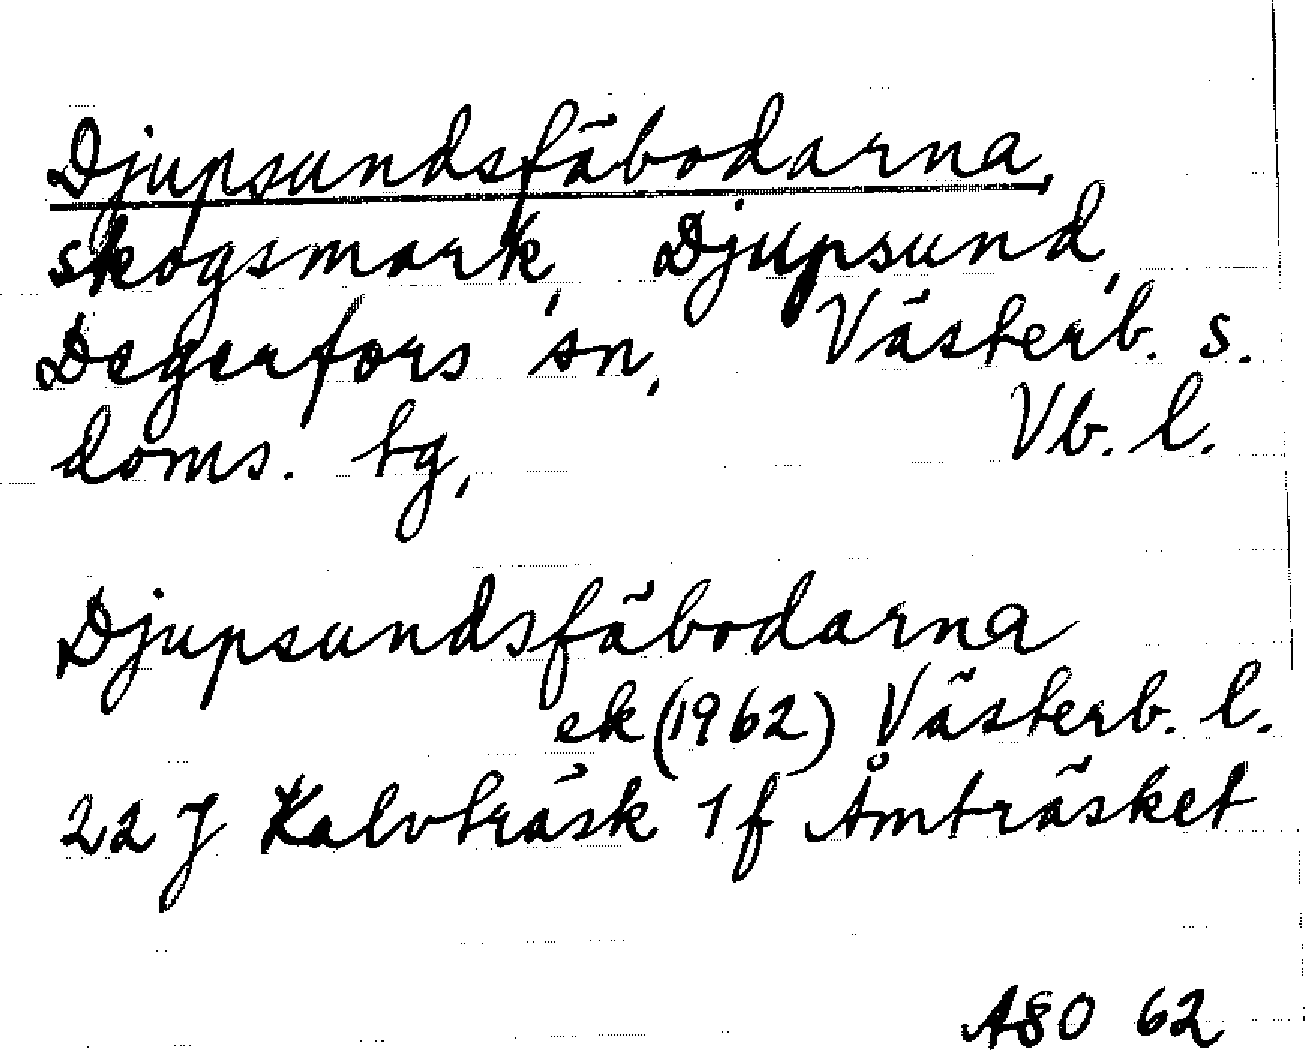 Djupsundsfäbodarna,
skogsmark, Djupsund,
Degerfors sn, Västerb. s.
doms. tg, Vb. l.
Djupsundsfäbodarna
ek (1962) Västerb. l.
22 J Kalvträsk 1 f Åmträsket
ASO 62